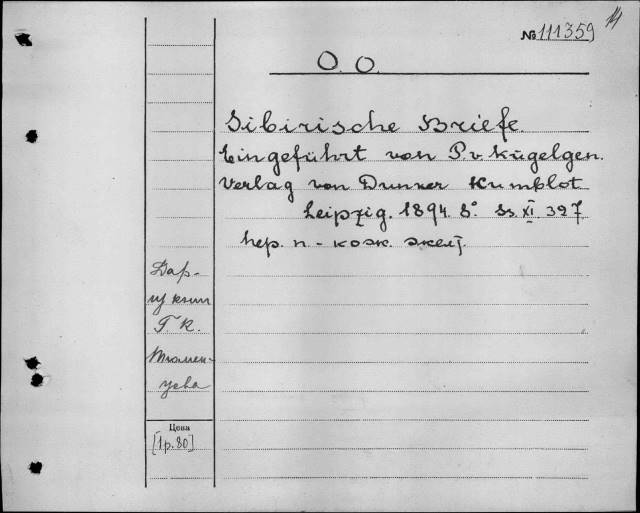 14
№ 111359
O. O.
Sibirische Briefe.
Eingeführt von P. v. Kügelgen.
Verlag von Dunker Humblot
Leipzig. 1894. 8° Ss. XI 327
пер. п.-кож. желт.
Дар-
из книг
Г. К.
Тюмен-
цева
Цена
[1 р. 80]